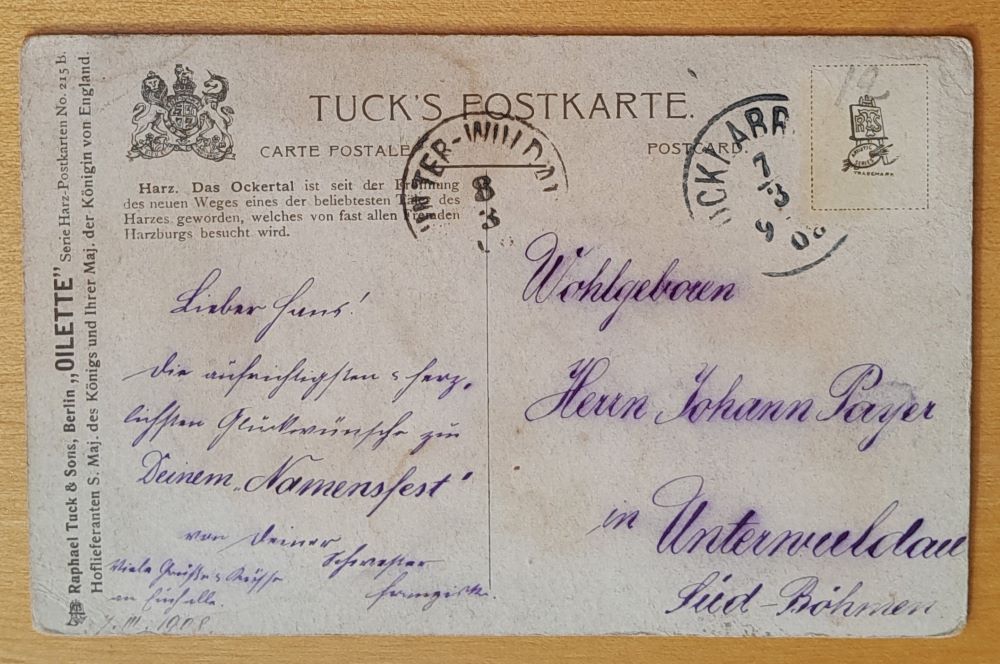 Raphael Tuck & Sons, Berlin „OILETTE" Serie Harz-Postkarten No. 215 B.
Hoflieferanten S. Maj. des Königs und Ihrer Maj. der Königin von England.
TUCK'S POSTKARTE.
CARTE POSTALE
POSTCARD.
Harz. Das Ockertal ist seit der Eröffnung
des neuen Weges eines der beliebtesten Täler des
Harzes geworden, welches von fast allen Fremden
Harzburgs besucht wird.
8
3
7
3
9 08
12
ARTISTIC
SERIES
TRADEMARK
Lieber Hans!
Die aufrichtigsten & herz-
lichsten Glückwünsche zu
Deinem „Namensfest"
von Deiner
Schwester
Franziska
Viele Grüße & Küsse
an Euch alle.
7. III. 1908.
Wohlgeboren
Herrn Johann Payer
in Unterwuldau
Süd-Böhmen